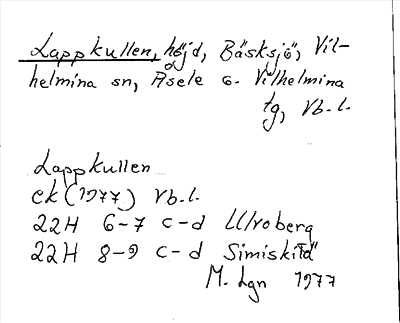 Lappkullen, höjd, Bäsksjö, Vil-
helmina sn, Åsele o. Vilhelmina
tg, Vb.l.
Lappkullen
ek (1977) Vb.l.
22H 6-7 c-d Ulvoberg
22H 8-9 c-d
M. Lgn 1977